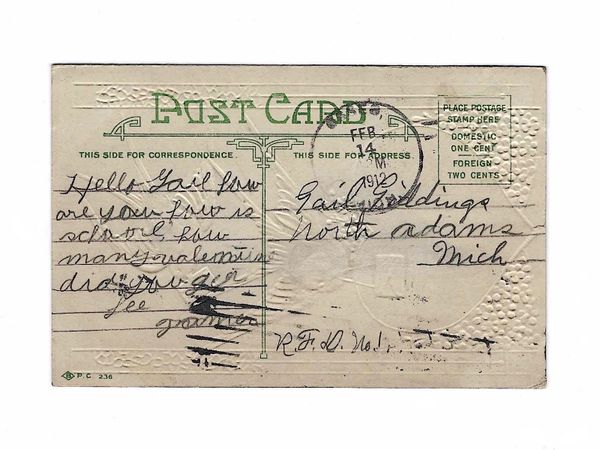 POST CARD
THIS SIDE FOR CORRESPONDENCE.
THIS SIDE FOR ADDRESS.
PLACE POSTAGE
STAMP HERE
DOMESTIC
ONE CENT
FOREIGN
TWO CENTS
FEB
14
M
1912
Hello Gail how
are you how is
school, how
many valentines
did you get
Gail Giddings
North Adams
Mich
R.F.D. No.1
P.C. 236